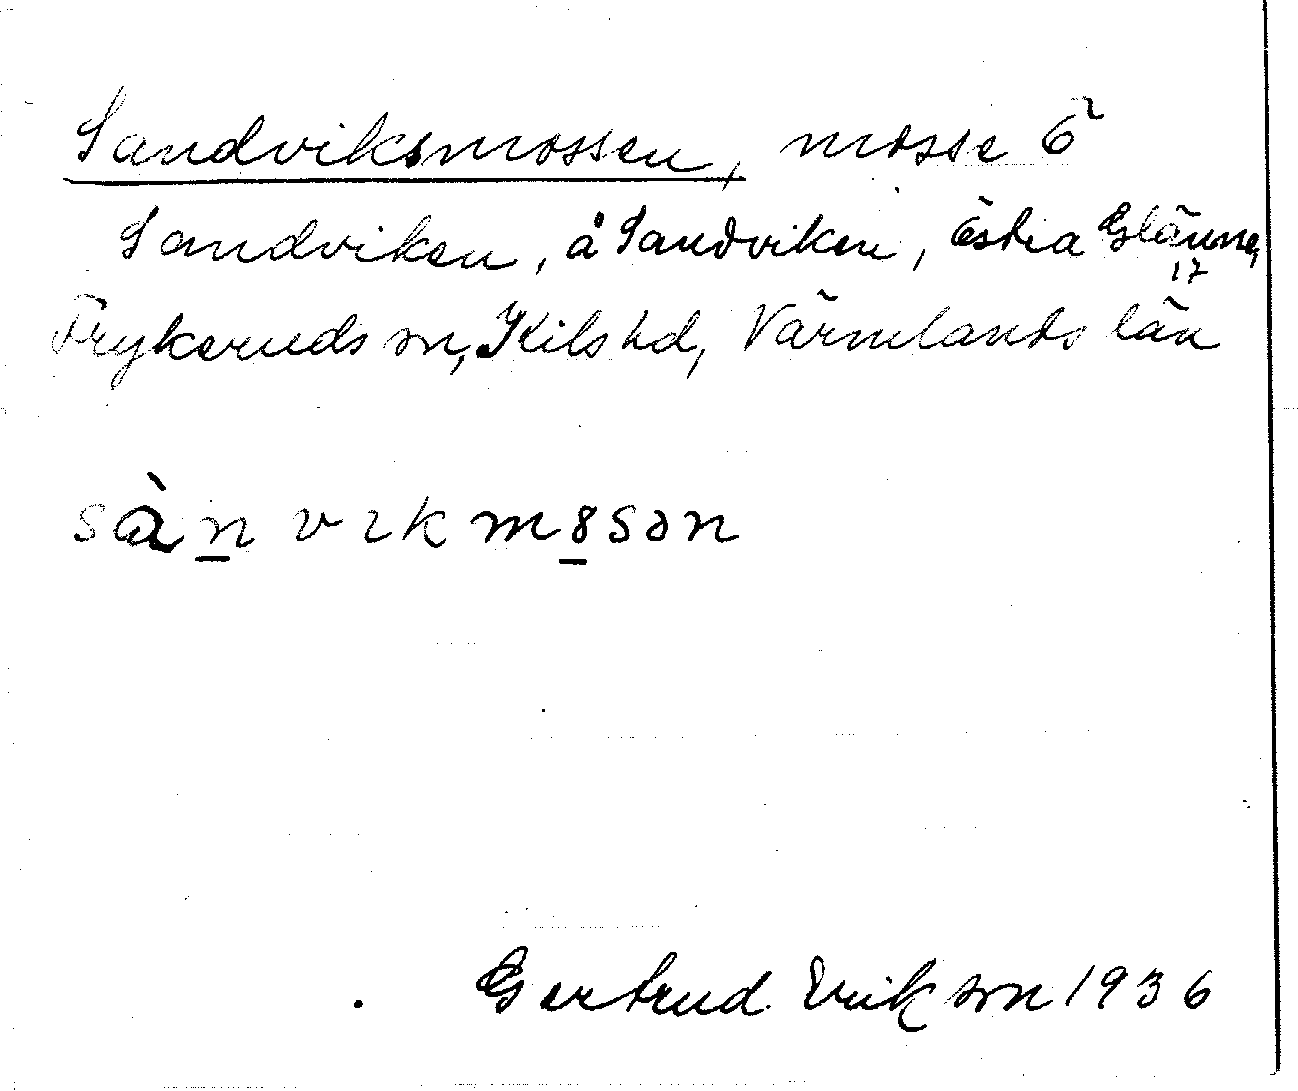 Sandviksmossen, mosse Ö
Sandviken, å Sandviken, Östra Glänne,
17
Frykeruds sn, Kils hd, Värmlands län
sàn vık m8sən
Gertrud Erikson 1936